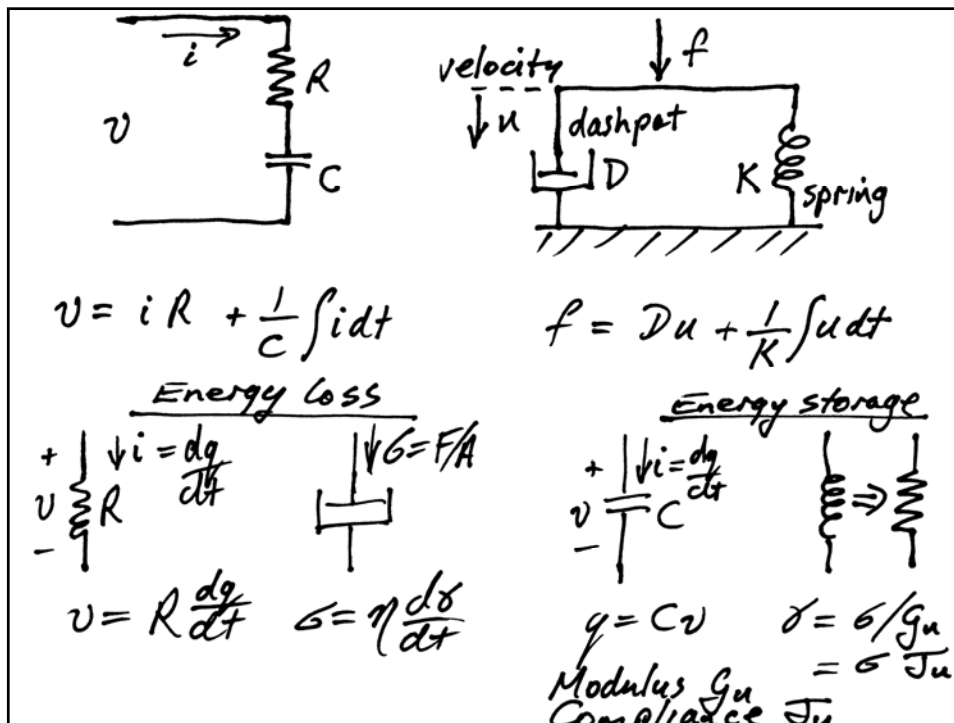 i
R
v
C
f
velocity
u
dashpot
D
K
spring
v = i R + 1/C ∫ i dt
f = Du + 1/K ∫ u dt
Energy loss
+ v − R i = dq/dt
σ = F/A
v = R dq/dt
σ = η dγ/dt
Energy storage
+ v − C i = dq/dt
⇒
q = Cv
γ = σ/Gu
= σ Ju
Modulus Gu
Compliance Ju